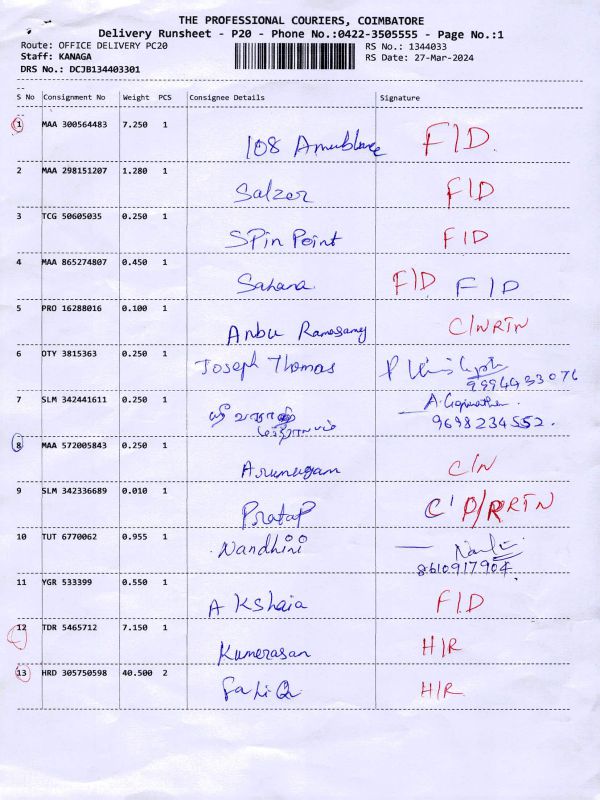 THE PROFESSIONAL COURIERS, COIMBATORE
Delivery Runsheet - P20 - Phone No.:0422-3505555 - Page No.:1
Route: OFFICE DELIVERY PC20 RS No.: 1344033
Staff: KANAGA RS Date: 27-Mar-2024
DRS No.: DCJB134403301
S No Consignment No Weight PCS Consignee Details Signature
1 MAA 300564483 7.250 1
108 F/D.
2 MAA 298151207 1.280 1
Salzer F/D
3 TCG 50605035 0.250 1
SPin Point F/D
4 MAA 865274807 0.450 1
Sahana F/D F/D
5 PRO 16288016 0.100 1
Anbu Ramasamy C/NRTN
6 OTY 3815363 0.250 1
Joseph Thomas
9994933076
7 SLM 342441611 0.250 1
9698234552.
8 MAA 572005843 0.250 1
Arumugam C/N
9 SLM 342336689 0.010 1
Pratap
10 TUT 6770062 0.955 1
Nandhini
8610917904.
11 YGR 533399 0.550 1
AKshaia F/D
12 TDR 5465712 7.150 1
Kumerasan H/R
13 HRD 305750598 40.500 2
H/R